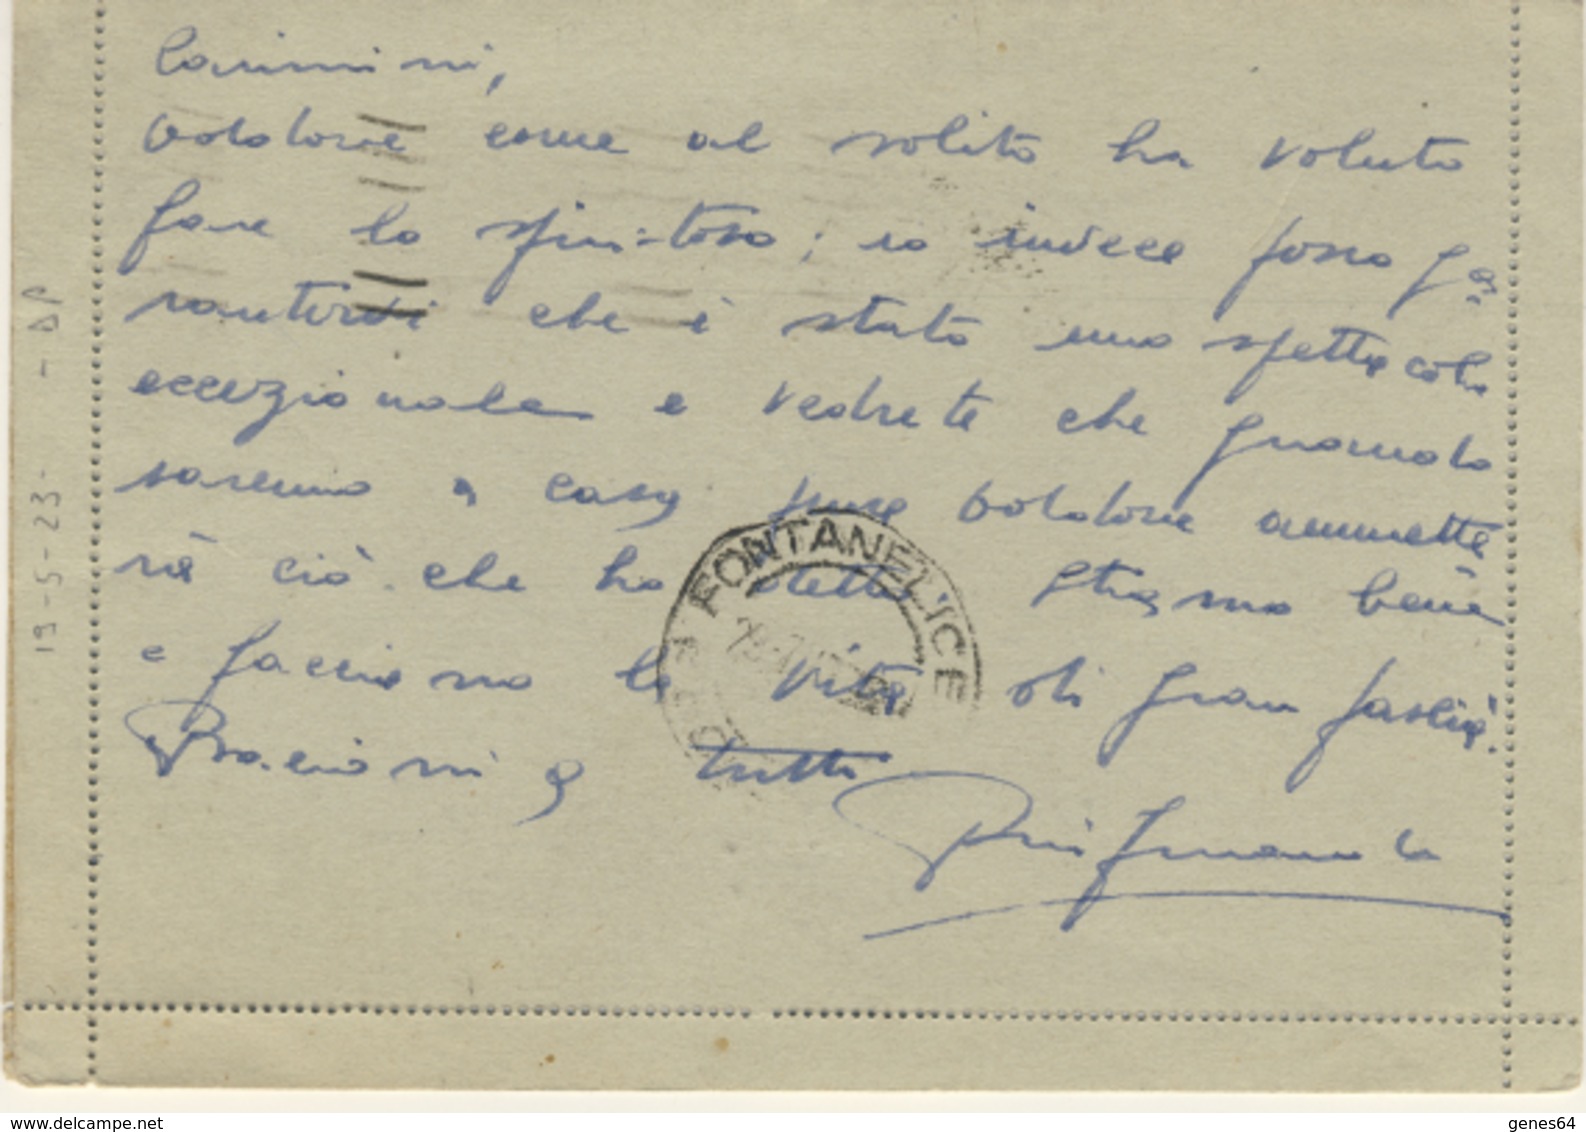 Carissimi,
Odolone come al solito ha voluto
fare lo spiritoso; io invece posso ga=
rantirvi che è stato uno spettacolo
eccezionale e vedrete che quando
saremo a casa pure Odolone ammette
rà ciò che ho detto. Stiamo bene
e facciamo la vita di gran pascià.
Bacioni a tutti
FONTANELICE
19-5-23- - DP
www.delcampe.net
genes64